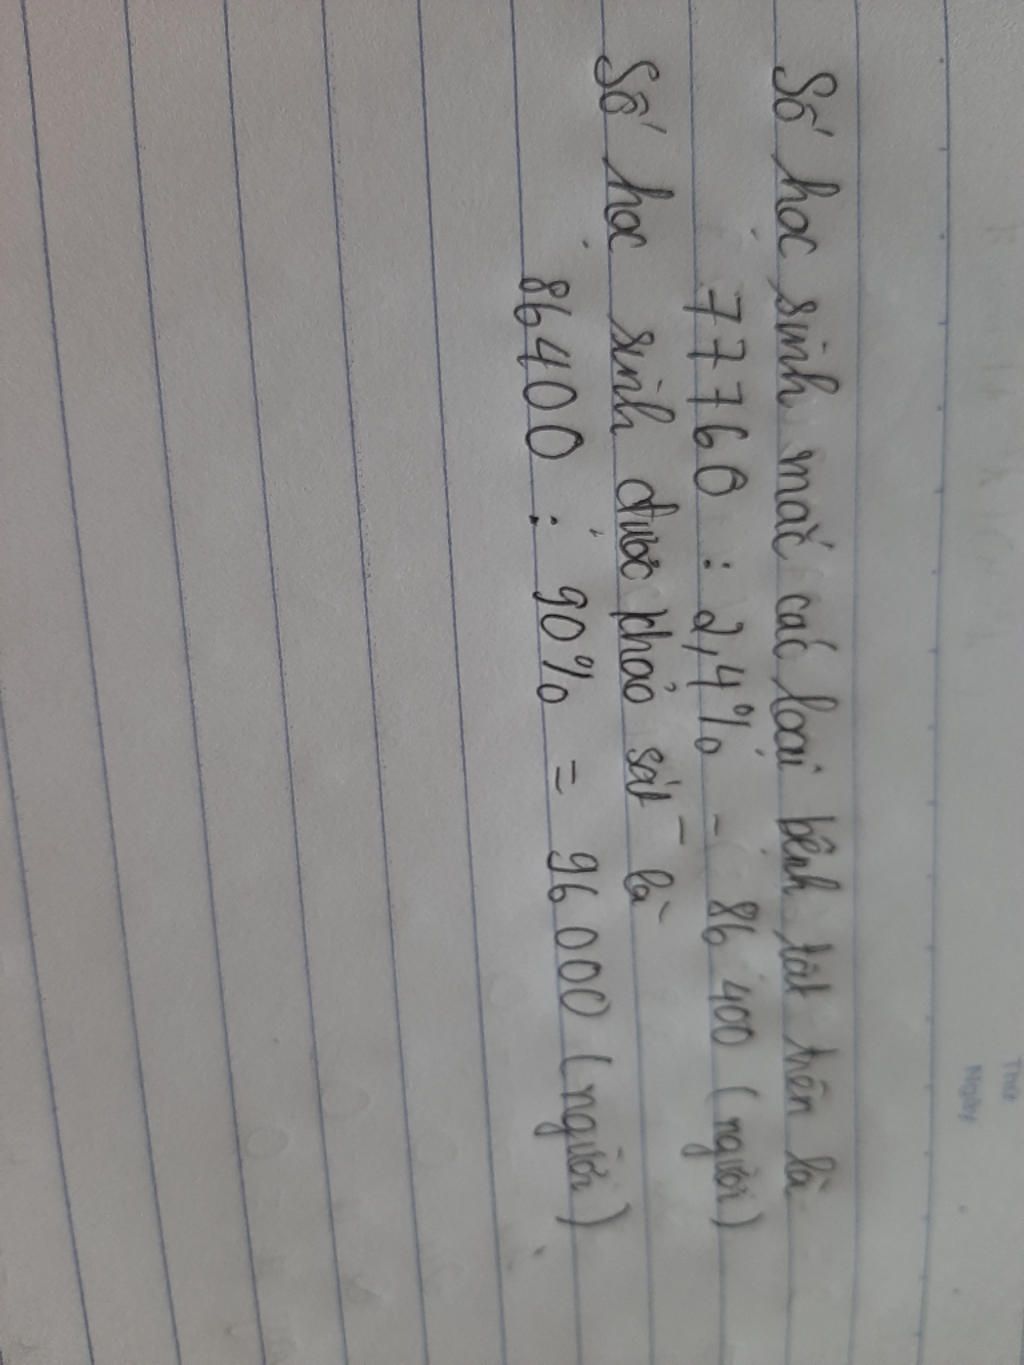 Thứ
Ngày
Số học sinh mắc các loại bệnh tật trên là
7776 : 2,4% - 86 400 (người)
Số học sinh được khảo sát là
86400 : 90% = 96 000 (người)